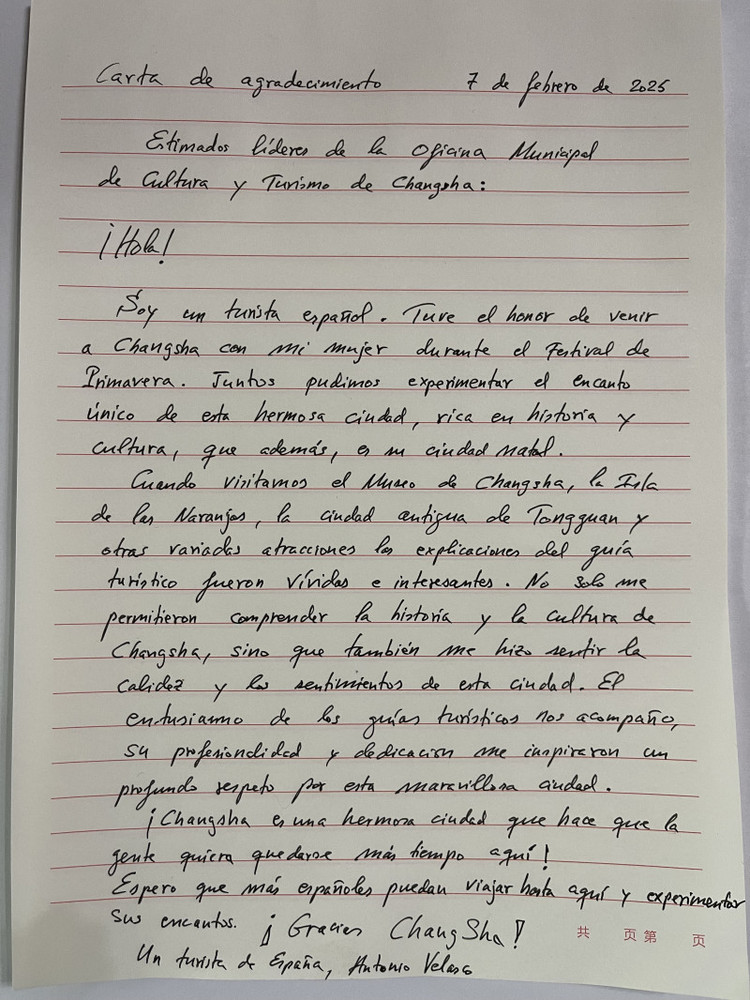 Carta de agradecimiento 7 de febrero de 2025
Estimados líderes de la Oficina Municipal
de Cultura y Turismo de Changsha:
¡Hola!
Soy un turista español. Tuve el honor de venir
a Changsha con mi mujer durante el Festival de
Primavera. Juntos pudimos experimentar el encanto
único de esta hermosa ciudad, rica en historia y
cultura, que además, es su ciudad natal.
Cuando visitamos el Museo de Changsha, la Isla
de las Naranjas, la ciudad antigua de Tongguan y
otras variadas atracciones las explicaciones del guía
turístico fueron vívidas e interesantes. No solo me
permitieron comprender la historia y la cultura de
Changsha, sino que también me hizo sentir la
calidez y los sentimientos de esta ciudad. El
entusiasmo de los guías turísticos nos acompaño,
su profesionalidad y dedicación me inspiraron un
profundo respeto por esta maravillosa ciudad.
¡Changsha es una hermosa ciudad que hace que la
gente quiera quedarse más tiempo aquí!
Espero que más españoles puedan viajar hasta aquí y experimentar
sus encantos. ¡Gracias ChangSha!
共 页 第 页
Un turista de España, Antonio Velasco